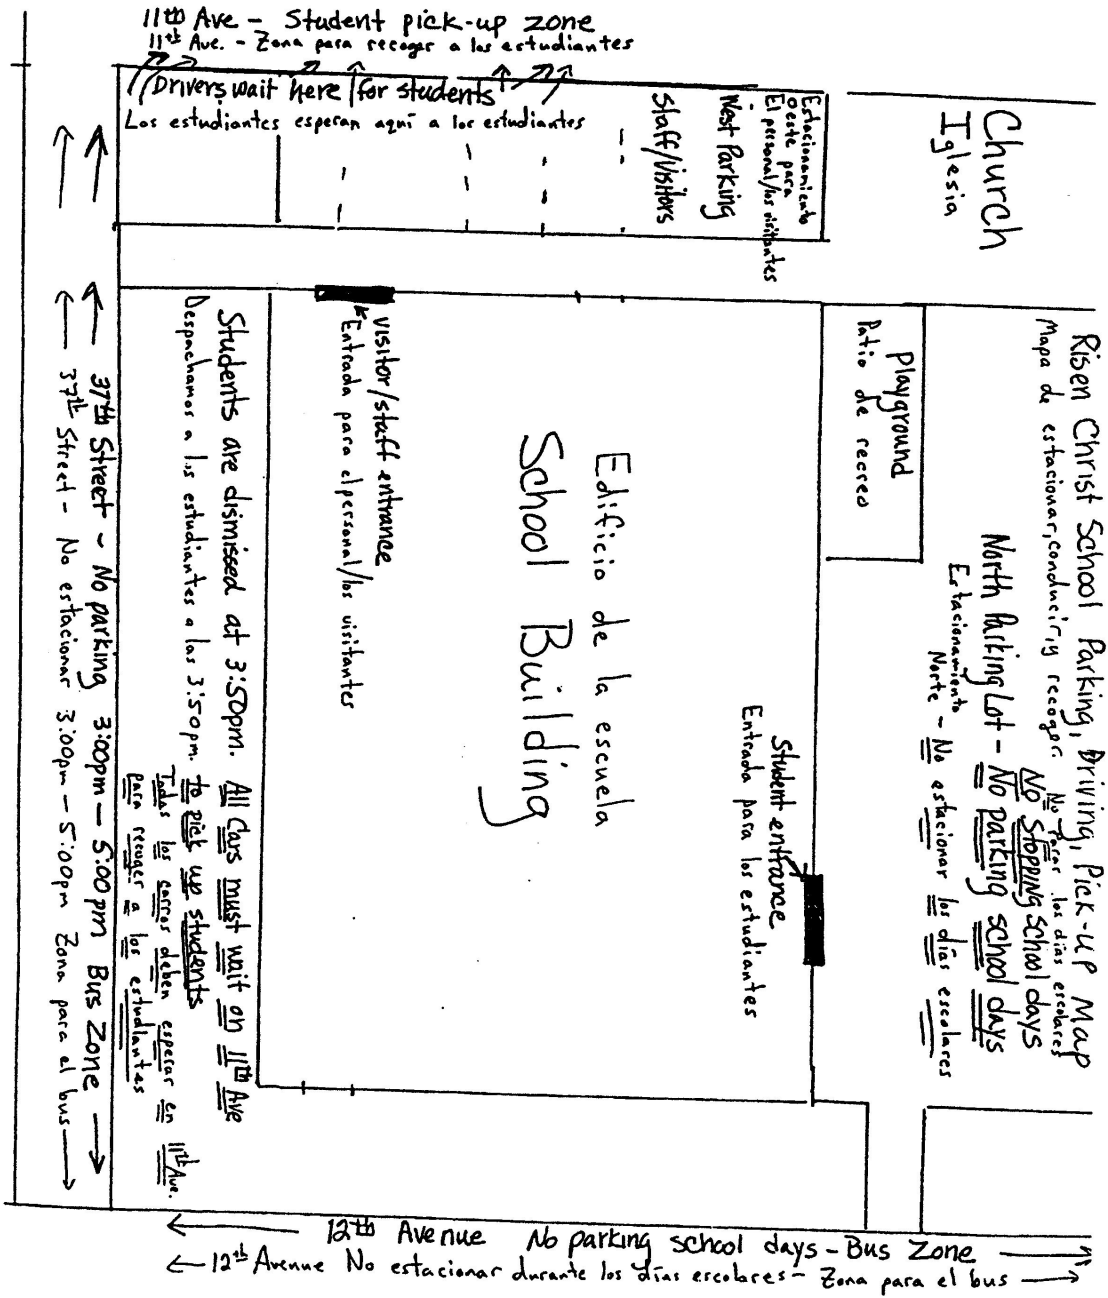 11th Ave - Student pick-up zone
11th Ave. - Zona para recoger a los estudiantes
Drivers wait here for students
Los estudiantes esperan aquí a los estudiantes
Staff/Visitors
West Parking
Estacionamiento
oeste para
El personal/los visitantes
Church
Iglesia
Risen Christ School Parking, Driving, Pick-up Map
Mapa de estacionar, conducir, y recoger.
No parar los días escolares
No STOPPING School days
North Parking Lot - No parking school days
Estacionamiento
Norte - No estacionar los días escolares
Playground
Patio de recreo
Edificio de la escuela
School Building
Student entrance
Entrada para los estudiantes
visitor/staff entrance
Entrada para el personal/los visitantes
Students are dismissed at 3:50pm. All Cars must wait on 11th Ave
to pick up students
Despachamos a los estudiantes a las 3:50pm.
Todas los carros deben esperar en 11th Ave.
para recoger a los estudiantes
37th Street - No parking 3:00pm - 5:00pm Bus Zone
37th Street - No estacionar 3:00pm - 5:00pm Zona para el bus
12th Avenue No parking school days - Bus Zone
12th Avenue No estacionar durante los días escolares - Zona para el bus